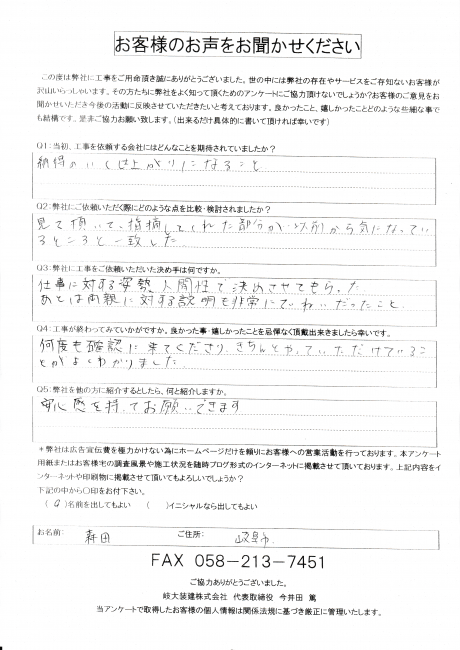 お客様のお声をお聞かせください
この度は弊社に工事をご用命頂き誠にありがとうございました。世の中には弊社の存在やサービスをご存知ないお客様が
沢山いらっしゃいます。その方たちに弊社をよく知って頂くためのアンケートにご協力頂けないでしょうか?お客様のご意見をお
聞かせいただき今後の活動に反映させていただきたいと考えております。良かったこと、嬉しかったことどのような些細な事で
も結構です。是非ご協力お願い致します。（出来るだけ具体的に書いて頂ければ幸いです）
Q1:当初、工事を依頼する会社にはどんなことを期待されていましたか?
納得のいく仕上がりになること
Q2:弊社にご依頼いただく際にどのような点を比較・検討されましたか?
見て頂いて、指摘してくれた部分が以前から気になってい
るところと一致した
Q3:弊社に工事をご依頼いただいた決め手は何ですか。
仕事に対する姿勢、人間性で決めさせてもらった
あとは両親に対する説明も非常にていねいだったこと
Q4:工事が終わってみていかがですか。良かった事・嬉しかったことを忌憚なく頂戴出来きましたら幸いです。
何度も確認に来てくださり、きちんとやっていただけているこ
とがよくわかりました
Q5:弊社を他の方に紹介するとしたら、何と紹介しますか。
安心感を持ってお願いできます
＊弊社は広告宣伝費を極力かけない為にホームページだけを頼りにお客様への営業活動を行っております。本アンケート
用紙またはお客様宅の調査風景や施工状況を随時ブログ形式のインターネットに掲載させて頂いております。上記内容をイ
ンターネットや印刷物に掲載させて頂いてもよろしいでしょうか?
下記の中から〇印をお付下さい。
（〇）名前を出してもよい （ ）イニシャルなら出してもよい
お名前: 森田 ご住所: 岐阜市
FAX 058-213-7451
ご協力ありがとうございました。
岐太装建株式会社 代表取締役 今井田 篤
当アンケートで取得したお客様の個人情報は関係法規に基づき厳正に管理いたします。